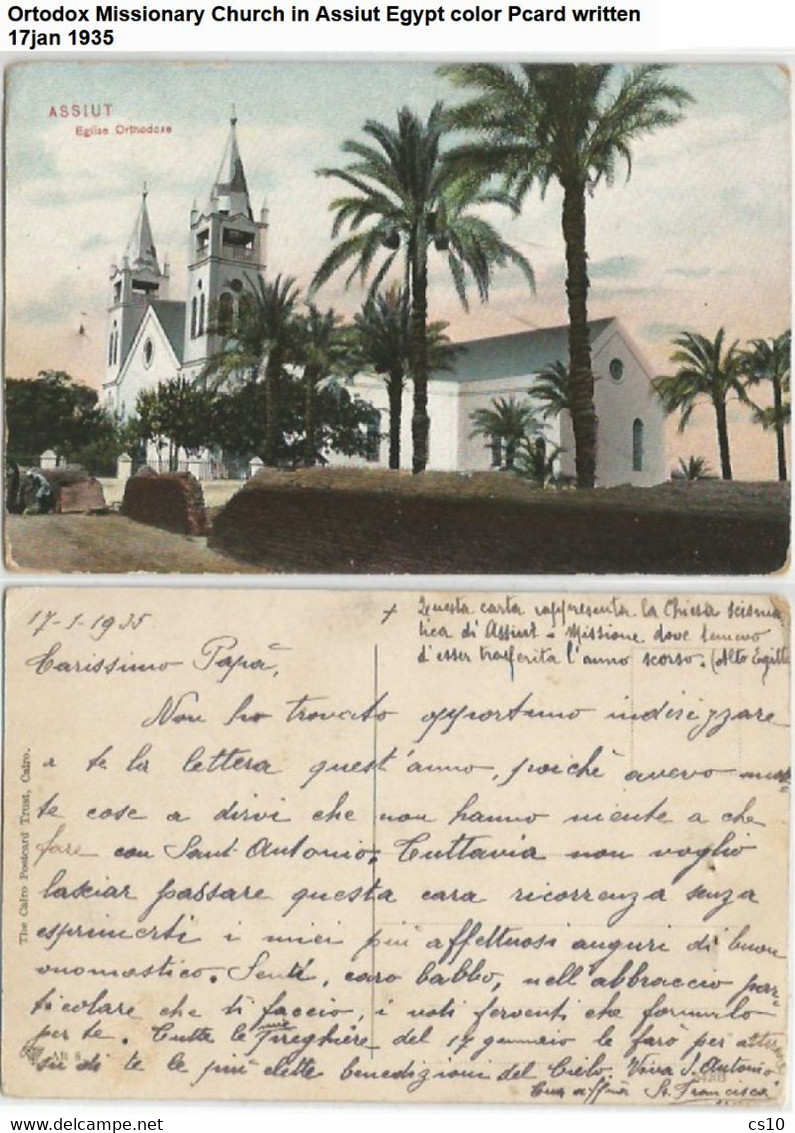 Ortodox Missionary Church in Assiut Egypt color Pcard written
17jan 1935
ASSIUT
Eglise Orthodoxe
17-1-1935
+ Questa carta rappresenta la Chiesa scisma
tica di Assiut - Missione dove temevo
d'esser trasferita l'anno scorso. (Alto Egitto
Carissimo Papà,
Non ho trovato opportuno indirizzare
a te la lettera quest'anno, poichè avevo
te cose a dirvi che non hanno niente a che
fare con Sant'Antonio. Tuttavia non voglio
lasciar passare questa cara ricorrenza senza
esprimerti i miei più affettuosi auguri di buon
onomastico. Senti, caro babbo, nell'abbraccio par-
ticolare che ti faccio, i voti ferventi che formulo
per te. Tutte le mie preghiere del 17 gennaio le farò per
su di te le più elette benedizioni del Cielo. Viva S. Antonio
Tua Sr. Francisca
The Cairo Postcard Trust, Cairo.
cs10